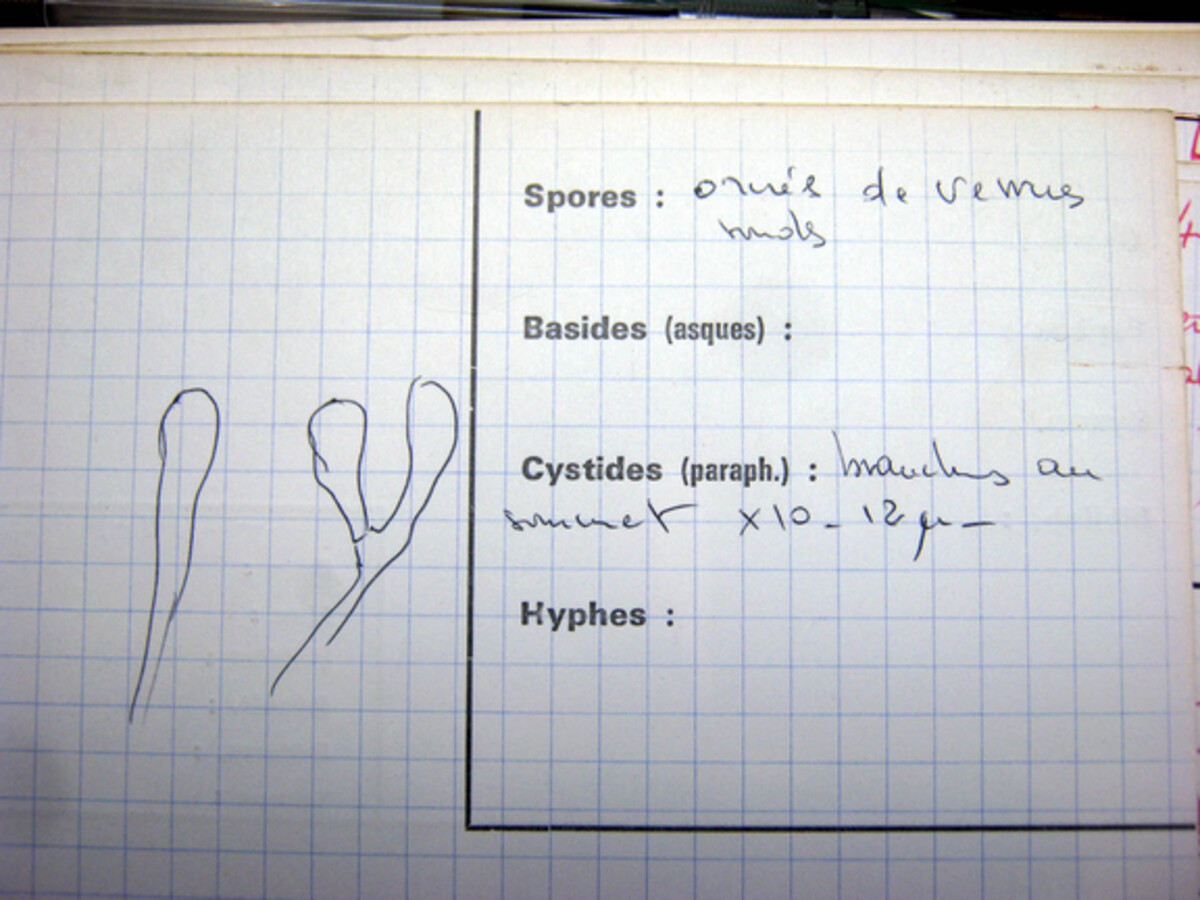 Spores : ornés de verrues
ronds
Basides (asques) :
Cystides (paraph.) : branchus au
sommet x10 - 12 µ -
Hyphes :